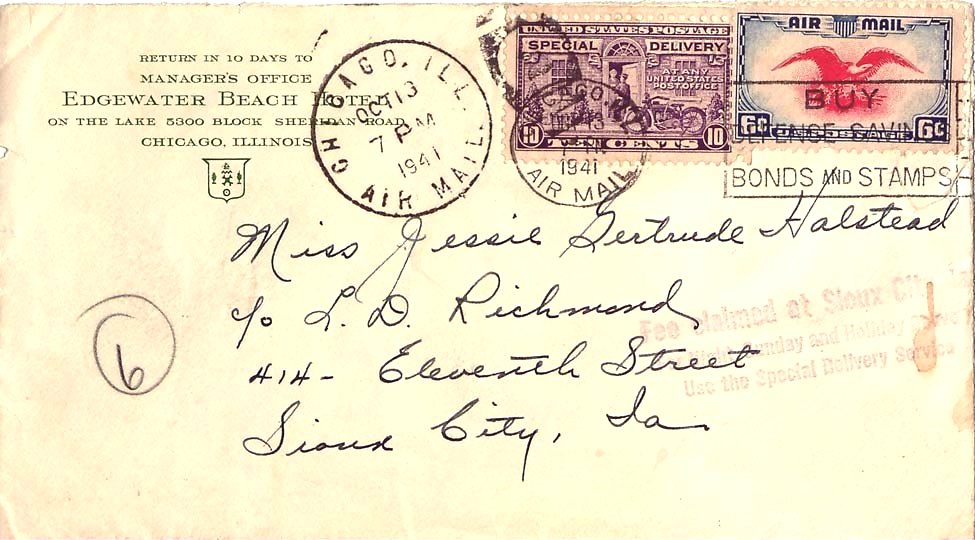 RETURN IN 10 DAYS TO
MANAGER'S OFFICE
EDGEWATER BEACH HOTEL
ON THE LAKE 5300 BLOCK SHERIDAN ROAD
CHICAGO, ILLINOIS
CHICAGO, ILL.
OCT 13
7 PM
1941
AIR MAIL.
UNITED STATES POSTAGE
SPECIAL DELIVERY
AT ANY
UNITED STATES
POST OFFICE
10 TEN CENTS 10
1941
AIR MAIL
AIR MAIL
6¢ 6¢
BUY
DEFENSE SAVINGS
BONDS AND STAMPS
Miss Jessie Gertrude Halstead
c/o L. D. Richmond
414 - Eleventh Street
Sioux City, Ia
Fee claimed at Sioux City
Night Sunday and Holiday
Use the Special Delivery Service
6